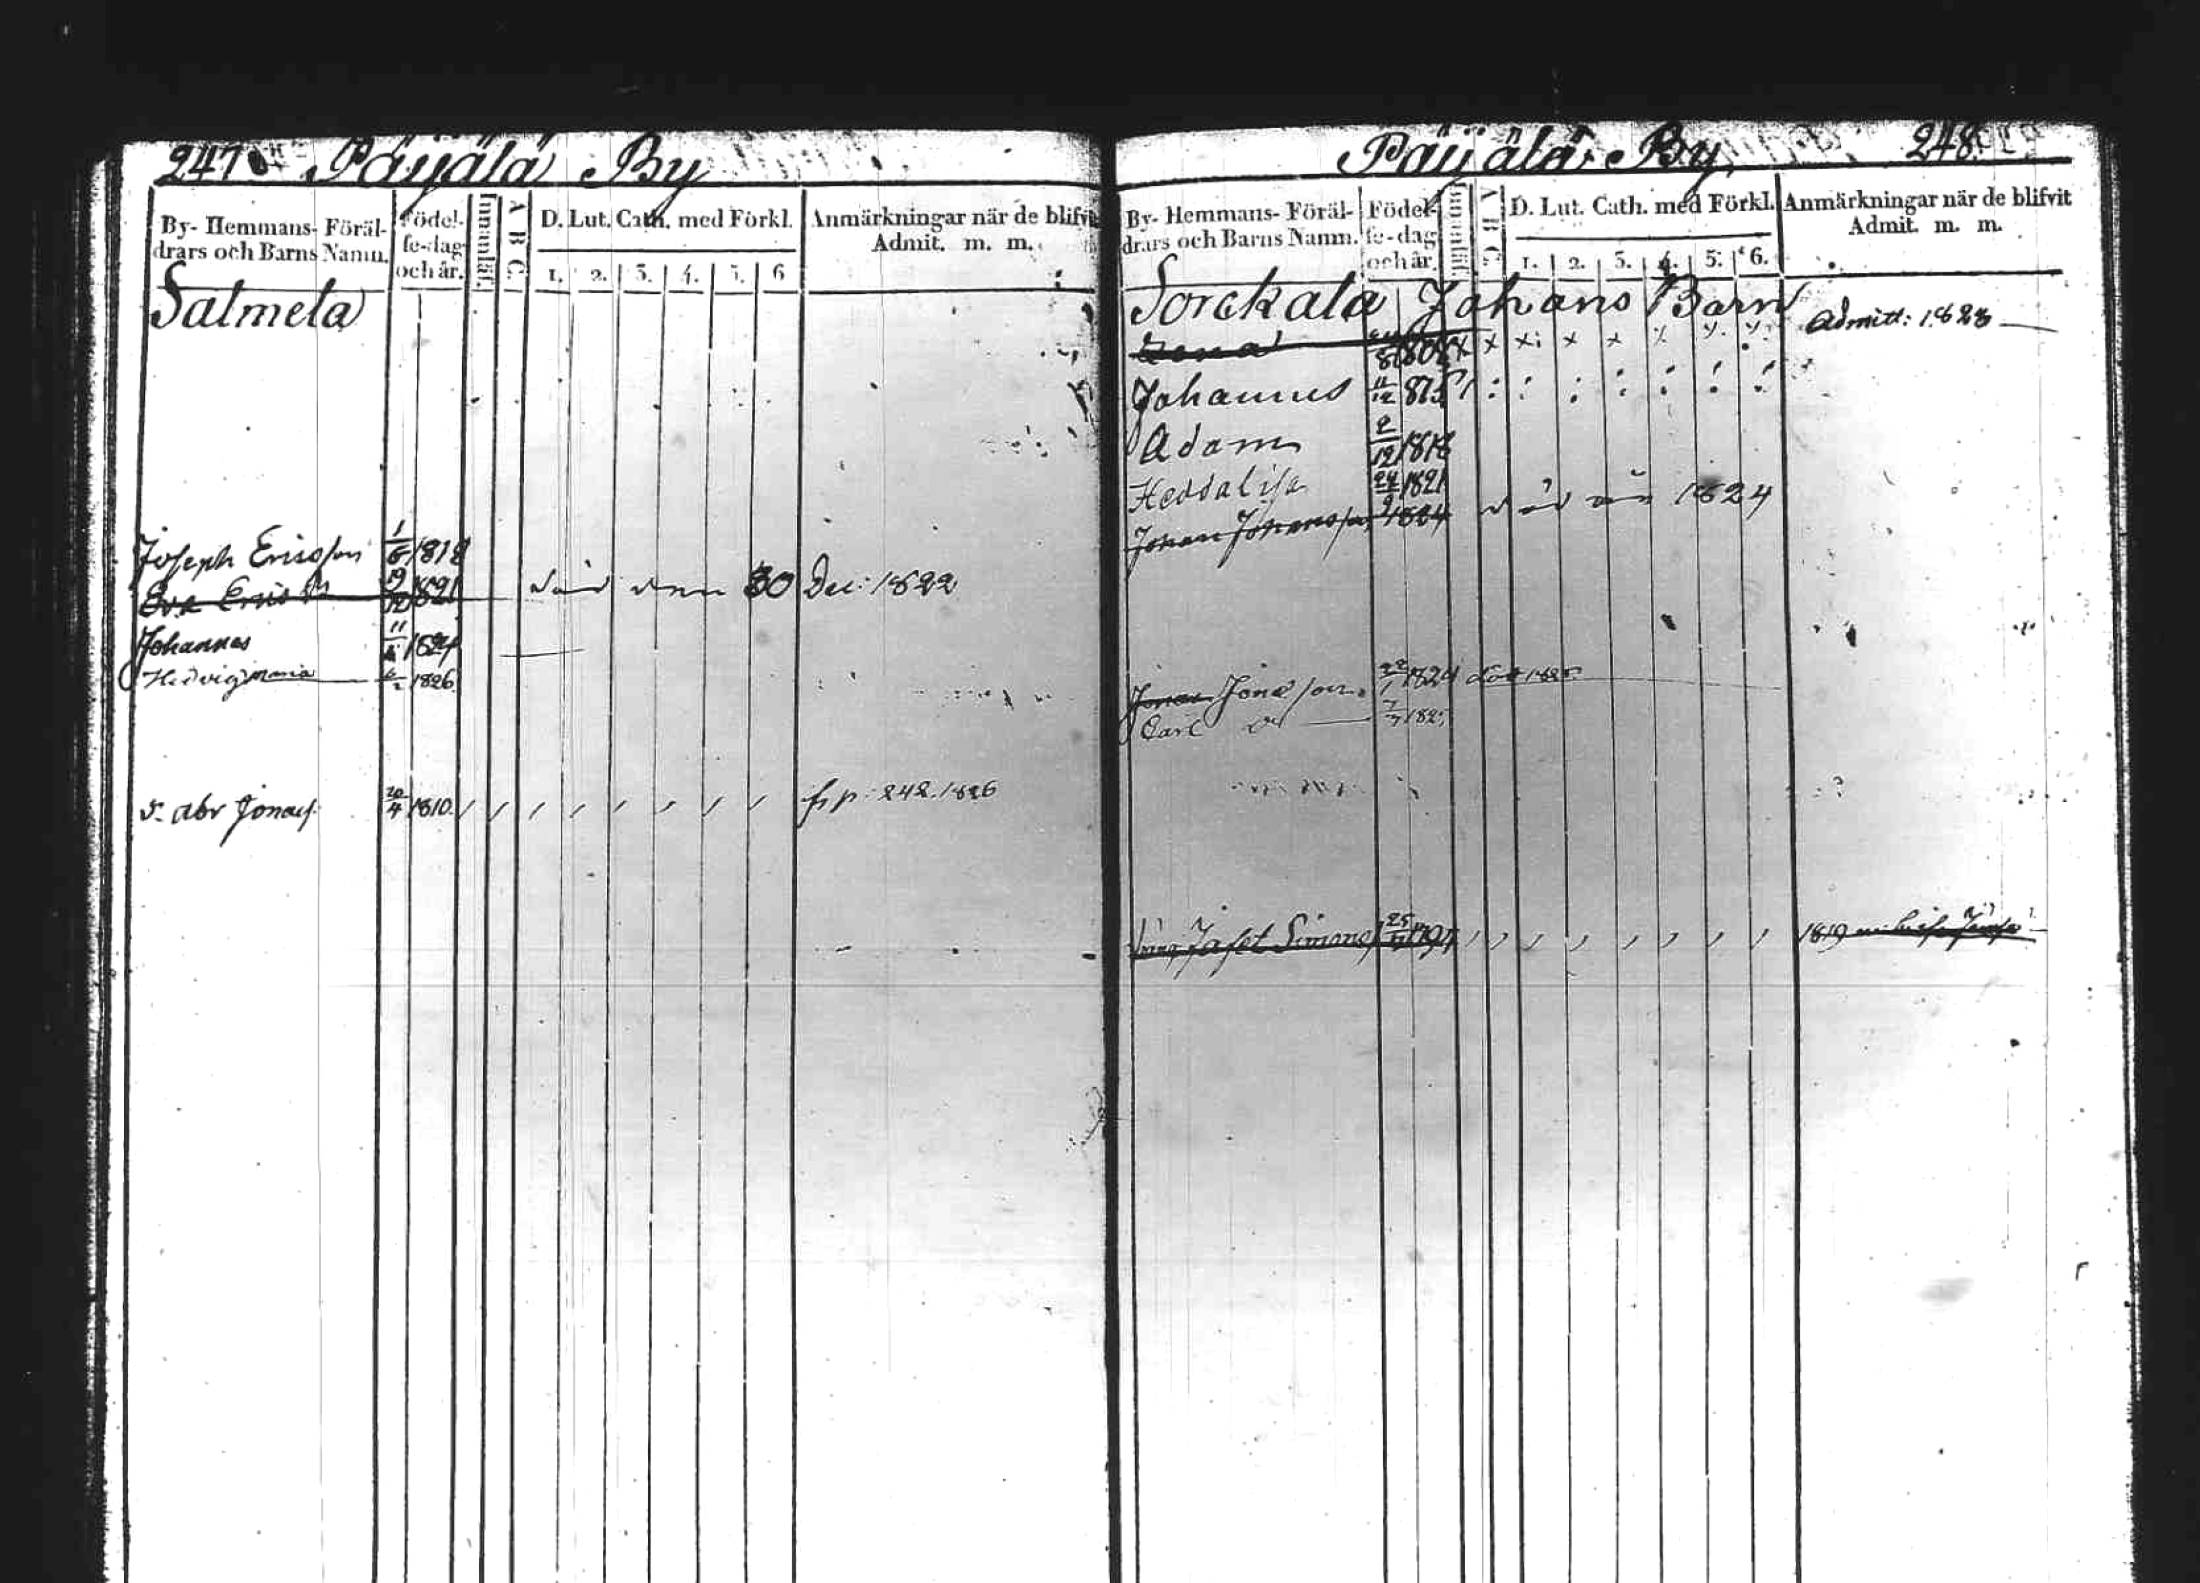 247 Päijälä By
By- Hemmans- Föräl-
drars och Barns Namn.
Födel-
se-dag
och år.
Innanläs.
A B C.
D. Lut. Cath. med Förkl.
1. 2. 3. 4. 5. 6
Anmärkningar när de blifvit
Admit. m. m.
Salmela
Joseph Ericsson 1/6 1818
Eva Erics 19/10 1821 död den 30 Dec: 1822
Johannes 11 1824
Hedvig Maria 1826
d. Abr Jonass. 20/4 1810 fr p: 242. 1826
Päijälä By 248
By- Hemmans- Föräl-
drars och Barns Namn.
Födel-
se-dag
och år.
Innanläs.
A B C.
D. Lut. Cath. med Förkl.
1. 2. 3. 4. 5. 6.
Anmärkningar när de blifvit
Admit. m. m.
Sorckala Johans Barn
Admitt: 1823
Johannes 11/12 815
Adam 2/12 1818
Hedda Lisa 24/9 1821
Johan Johansson 1824 död 1824
Jonas Jonasson 22/1 1824 död 1825
Carl do 7/7 182
dräng Jafet Simons 25 179
1819